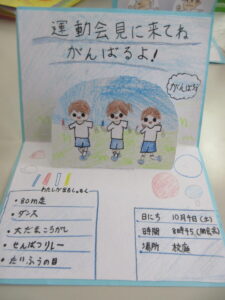 運動会見に来てね
がんばるよ！
がんばるぞ
わたしがでるしゅもく
・80m走
・ダンス
・大だまころがし
・せんばつリレー
・たいふうの目
・日にち 10月4日(土)
・時間 8時45(開会式)
・場所 校庭